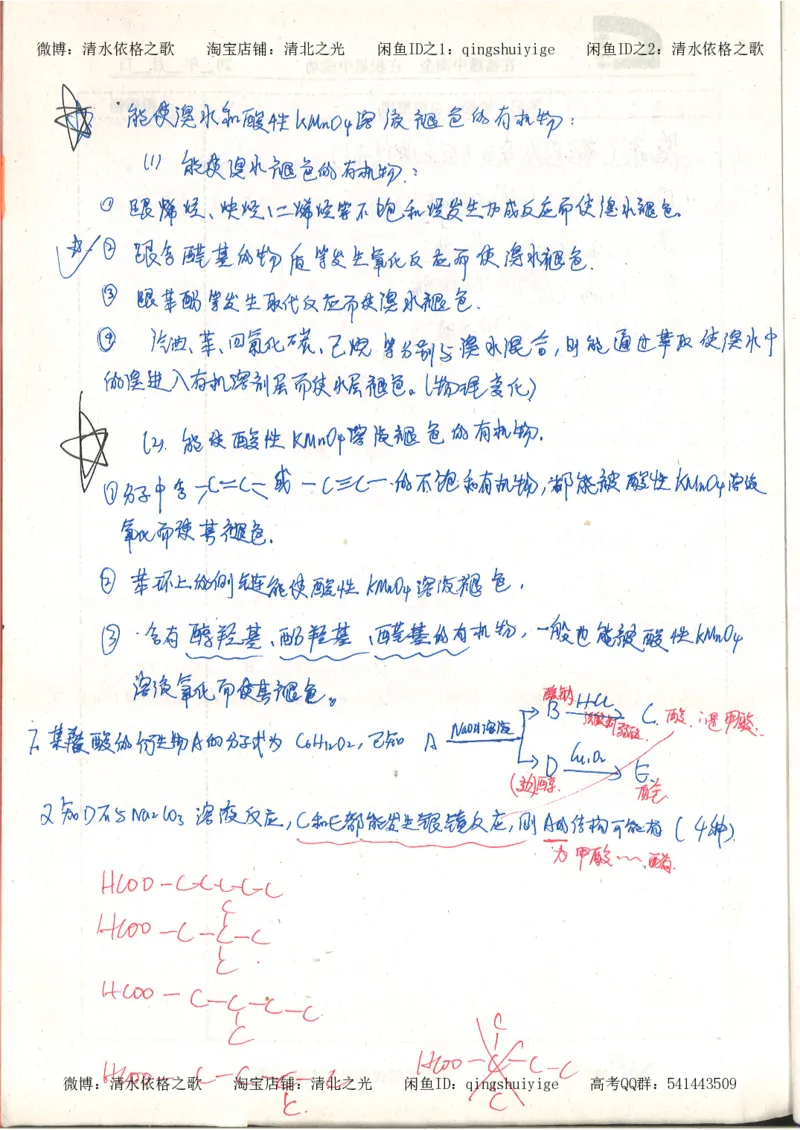 微博：清水依格之歌 淘宝店铺：清北之光 闲鱼ID之1：qingshuiyige 闲鱼ID之2：清水依格之歌
能使溴水和酸性KMnO4溶液褪色的有机物：
(1) 能使溴水褪色的有机物：
① 跟烯烃、炔烃、二烯烃等不饱和烃发生加成反应而使溴水褪色。
② 跟含醛基的物质等发生氧化反应而使溴水褪色.
③ 跟苯酚等发生取代反应而使溴水褪色.
④ 汽油、苯、四氯化碳、己烷等分别与溴水混合，则能通过萃取使溴水中
的溴进入有机溶剂层而使水层褪色。(物理变化)
(2). 能使酸性KMnO4溶液褪色的有机物.
①分子中含 -C=C- 或 -C≡C- 的不饱和有机物，都能被酸性KMnO4溶液
氧化而使其褪色.
② 苯环上的侧链能使酸性KMnO4溶液褪色.
③ 含有醇羟基、酚羟基、醛基的有机物，一般也能被酸性KMnO4
溶液氧化而使其褪色。
酸钠
B HCl C. 酸 ∴是甲酸.
7. 某羧酸的衍生物A的分子式为C6H12O2，已知 A NaOH溶液
D Cu,O2 E.
(动)醇. 醛
又知D不与Na2CO3溶液反应，C和E都能发生银镜反应，则A的结构可能有(4种).
为甲酸……酯.
HCOO-C-C-C-C-C
C
HCOO-C-C-C
C
HCOO-C-C-C-C
C
C
HCOO-C-C-C-C
C
HCOO-C-C-C-C
C.
微博：清水依格之歌 淘宝店铺：清北之光 闲鱼ID：qingshuiyige 高考QQ群：541443509